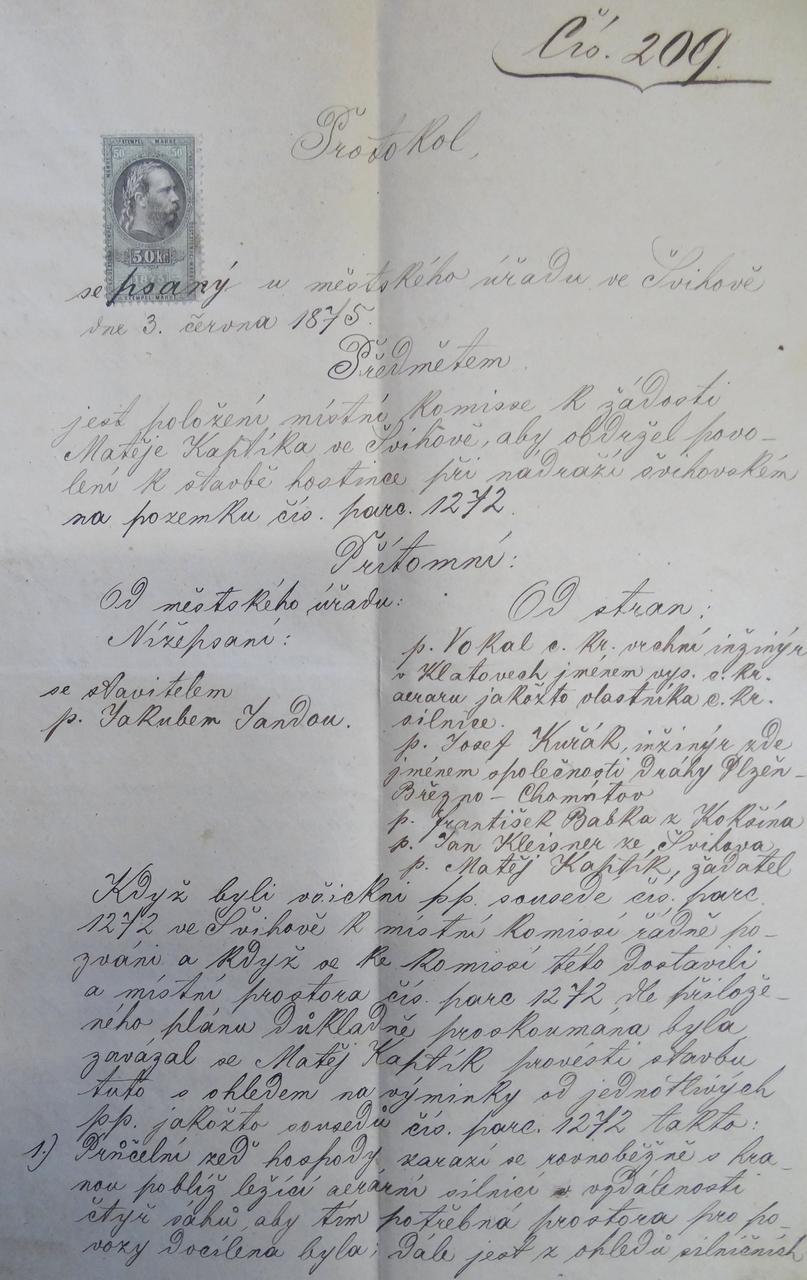 Čís. 209.
Protokol,
50 STEMPEL MARKE 50
50 kr
1875
STEMPEL MARKE
sepsaný u městského úřadu ve Švihově
dne 3. června 1875.
Předmětem
jest položení místní komisse k žádosti
Matěje Kaptíka ve Švihově, aby obdržel povo-
lení k stavbě hostince při nádraží švihovském
na pozemku čís. parc. 1272.
Přítomní:
Od městského úřadu:
Nížepsaní:
se stavitelem
p. Jakubem Jandou.
Od stran:
p. Vokal c. kr. vrchní inžinýr
v Klatovech jménem vys. c. kr.
aeraru jakožto vlastníka c. kr.
silnice.
p. Josef Kuřák, inžinýr zde
jménem společnosti dráhy Plzeň-
Březno-Chomútov
p. František Babka z Kokšína
p. Jan Kleisner ze Švihova
p. Matěj Kaptík, žadatel
Když byli všickni pp. sousede čís. parc.
1272 ve Švihově k místní komissí řádně po-
zváni a když se ke komissí této dostavili
a místní prostora čís. parc 1272 dle přilože-
ného plánu důkladně proskoumána byla,
zavázal se Matěj Kaptík provésti stavbu
tuto s ohledem na výminky od jednotlivých
pp. jakožto sousedů čís. parc. 1272 takto:
1.) Průčelní zeď hospody zarazí se rovnoběžně s hra-
nou poblíž ležící aerární silnicí v vzdálenosti
čtyř sáhů, aby tím potřebná prostora pro po-
vozy docílena byla; dále jest z ohledů silničních